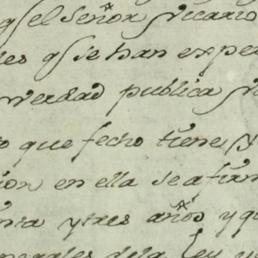 q el Señor Vicario
es q se han exper
verdad publica y
o que fecho tiene, y
ion en ella se afirm
enta y tres años y q
nerales dela Ley y